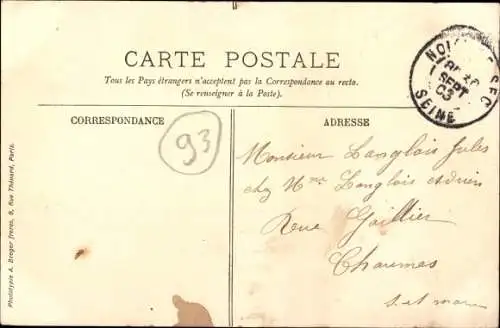 CARTE POSTALE
Tous les Pays étrangers n'acceptent pas la Correspondance au recto.
(Se renseigner à la Poste).
NOI SEC
SEPT
03
SEINE
CORRESPONDANCE
ADRESSE
93
Monsieur Langlois Jules
chez Mme Langlois
Rue Gallier
Chaumes
S. et Marne
Phototypie A. Breger frères, 9, Rue Thénard, Paris.